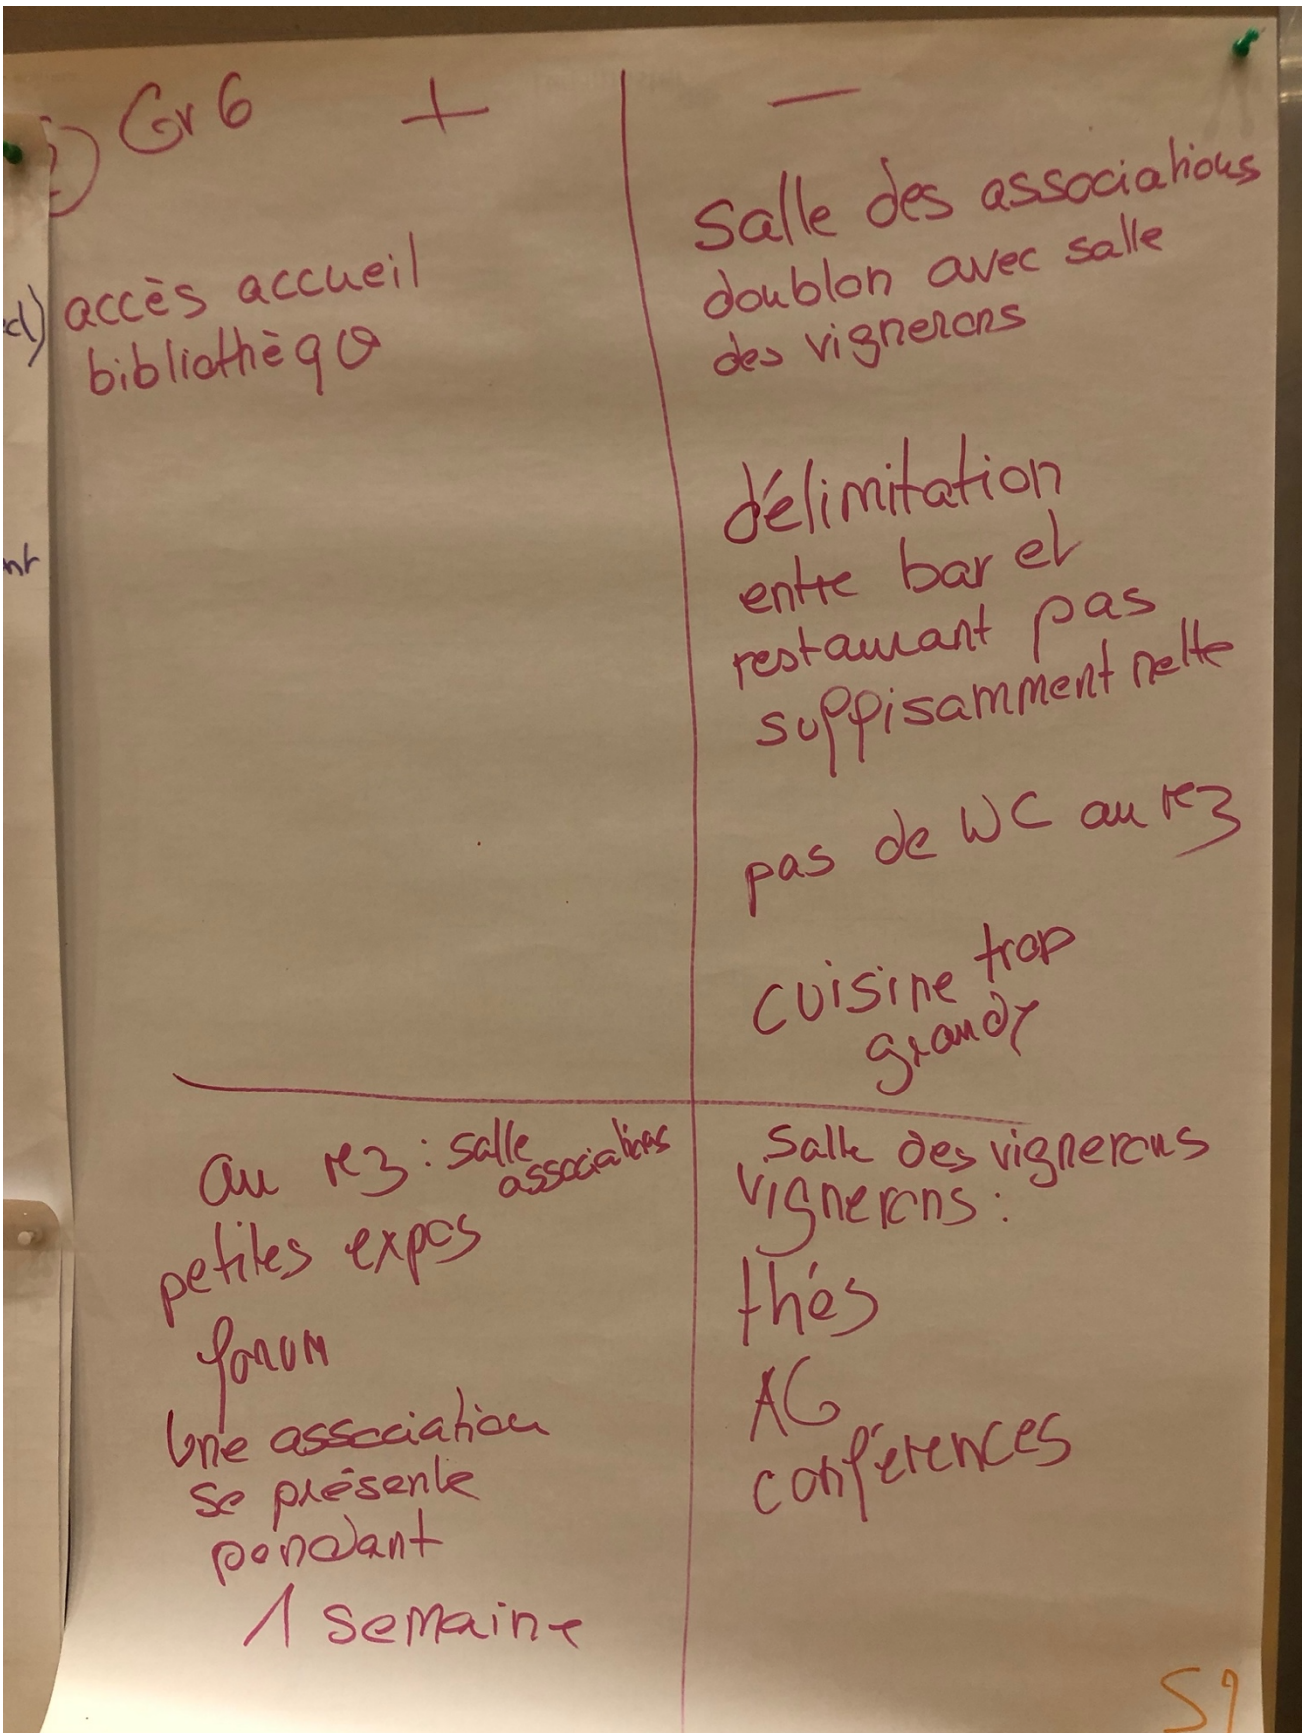 2) Gr 6
+
accès accueil
bibliothèq
—
Salle des associations
doublon avec salle
des vignerons
délimitation
entre bar et
restaurant pas
suffisamment nette
pas de WC au rez
cuisine trop
grande
au rez : salle
associations
petites expos
forum
Une association
se présente
pendant
1 semaine
Salle des vignerons
vignerons :
thés
AG
conférences